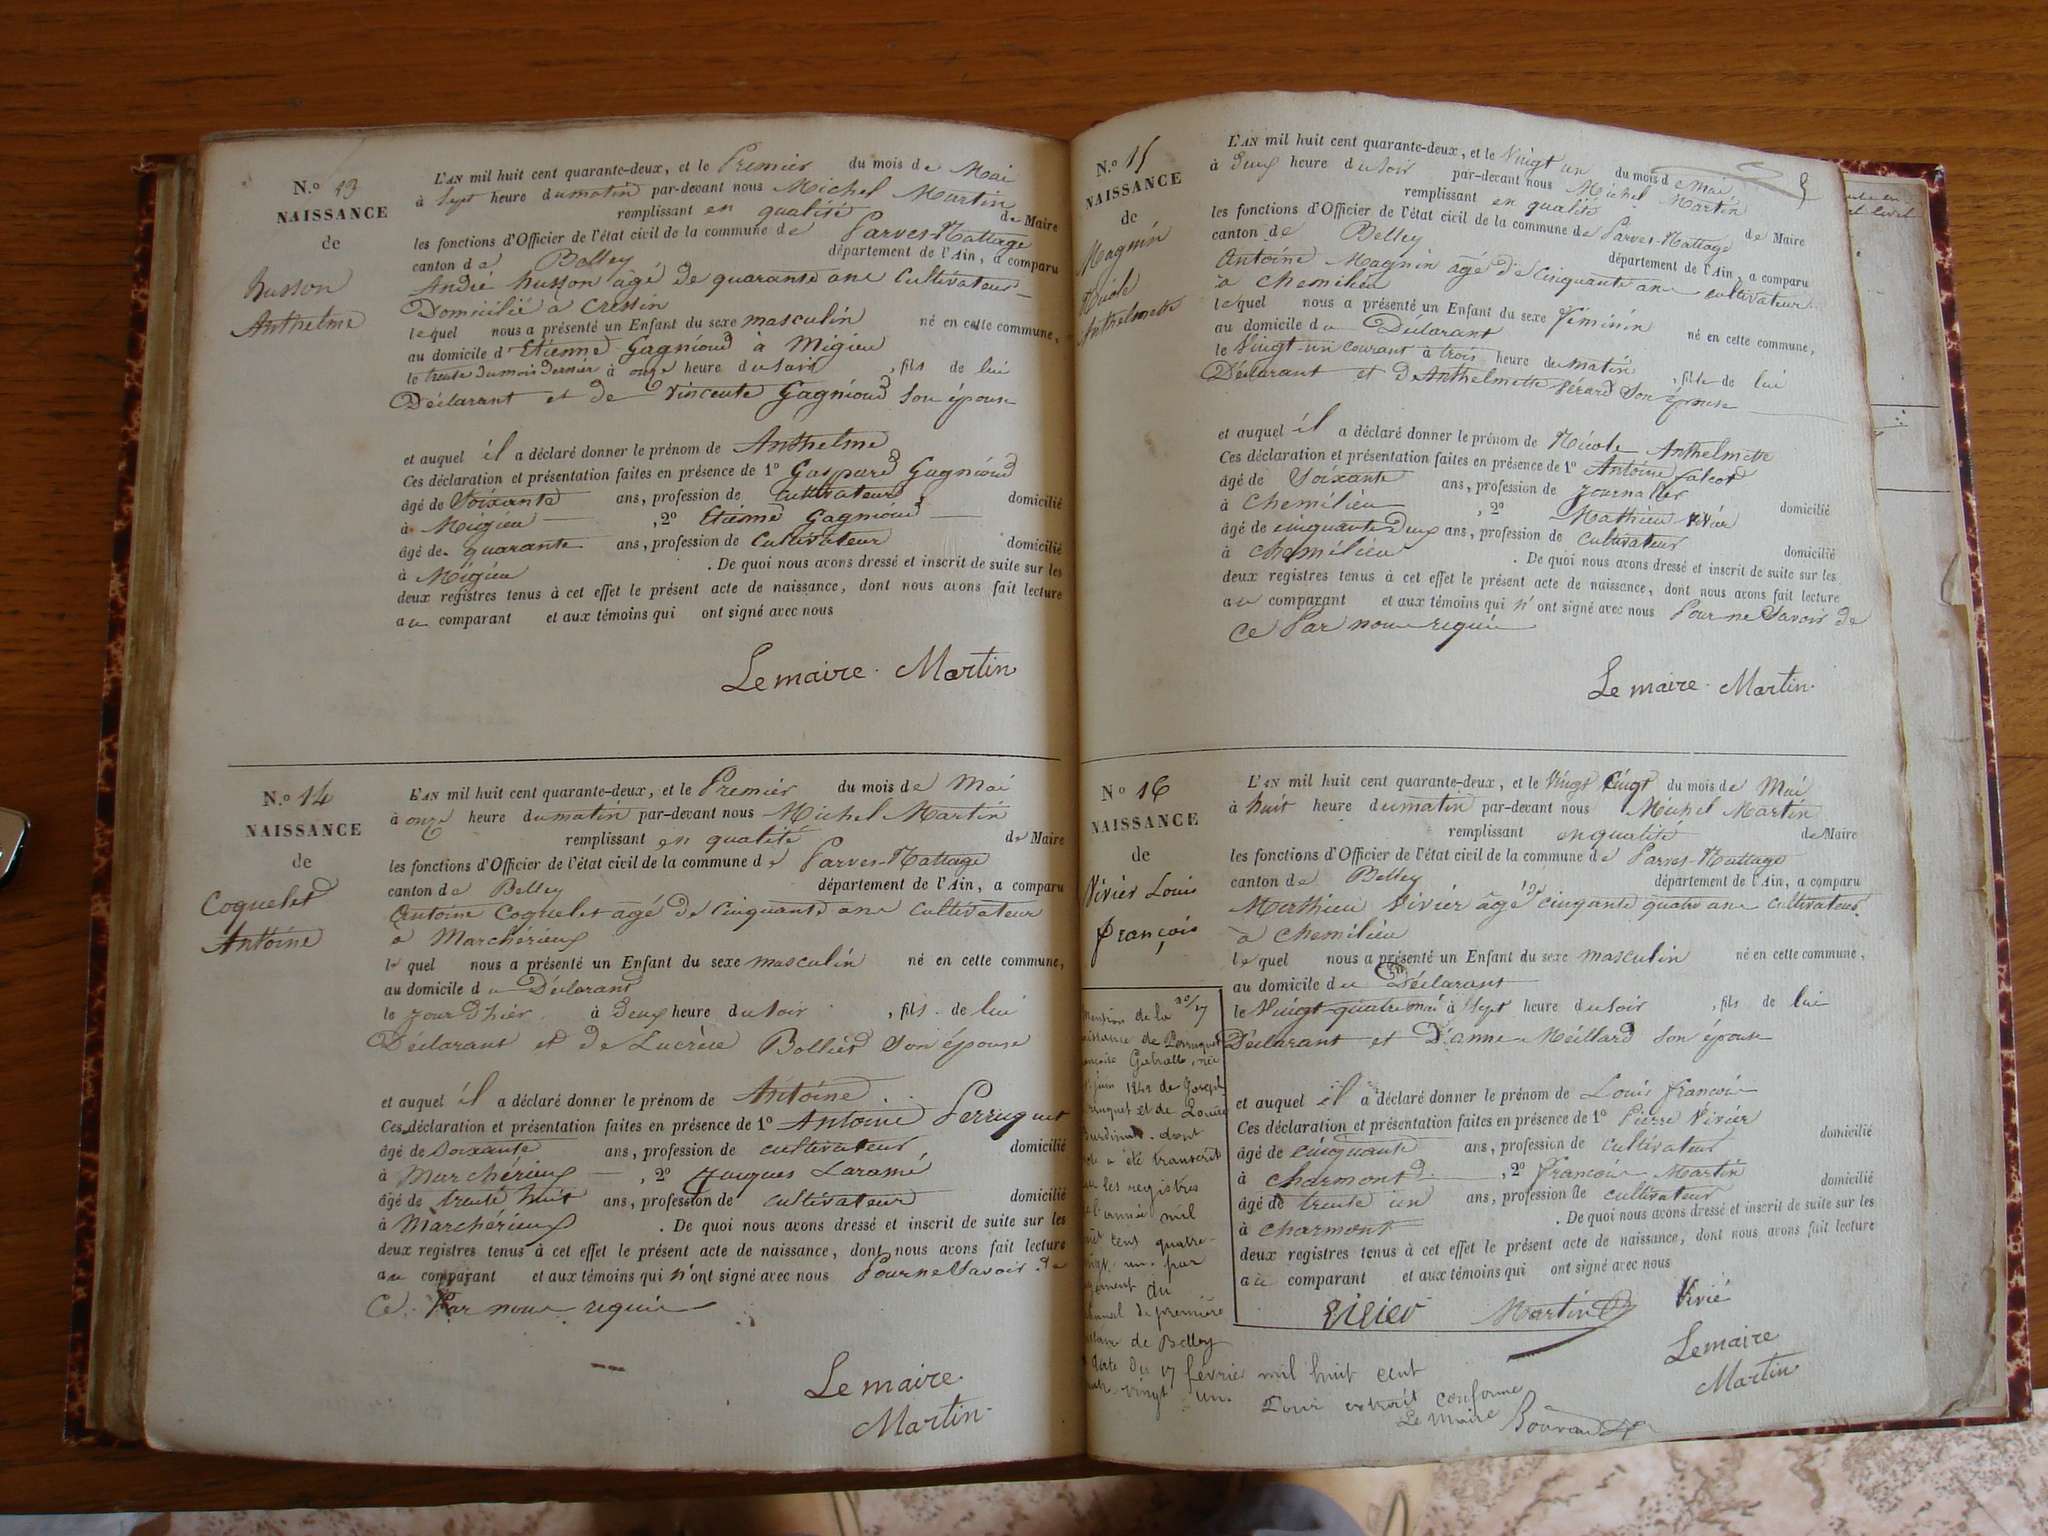 N.o 13
NAISSANCE
de
husson
Anthelme
L'AN mil huit cent quarante-deux, et le Premier du mois de Mai
à Sept heure du matin par-devant nous Michel Martin
remplissant en qualité de Maire
les fonctions d'Officier de l'état civil de la commune de Parves-Nattage
canton de Belley département de l'Ain, a comparu
André husson âgé de quarante ans Cultivateur
Domicilié à Cressin
lequel nous a présenté un Enfant du sexe masculin né en cette commune,
au domicile d'Etienne Gagnioud à Migieu
le trente du mois dernier à onze heure du soir, fils de lui
Déclarant et de Vincente Gagnioud Son épouse
et auquel il a déclaré donner le prénom de Anthelme
Ces déclaration et présentation faites en présence de 1o Gaspard Gagnioud
âgé de Soixante ans, profession de Cultivateur domicilié
à Migieu, 2o Etienne Gagnioud
âgé de quarante ans, profession de Cultivateur domicilié
à Migieu. De quoi nous avons dressé et inscrit de suite sur les
deux registres tenus à cet effet le présent acte de naissance, dont nous avons fait lecture
au comparant et aux témoins qui ont signé avec nous
Lemaire. Martin
N.o 14
NAISSANCE
de
Coquelet
Antoine
L'AN mil huit cent quarante-deux, et le Premier du mois de Mai
à onze heure du matin par-devant nous Michel Martin
remplissant en qualité de Maire
les fonctions d'Officier de l'état civil de la commune de Parves-Nattage
canton de Belley département de l'Ain, a comparu
Antoine Coquelet agé de Cinquante ans Cultivateur
à Marchérieux
lequel nous a présenté un Enfant du sexe masculin né en cette commune,
au domicile du Déclarant
le jour d'hier à deux heure du soir, fils de lui
Déclarant et de Lucrèce Bollied Son épouse
et auquel il a déclaré donner le prénom de Antoine
Ces déclaration et présentation faites en présence de 1o Antoine Perruquet
âgé de Soixante ans, profession de cultivateur domicilié
à Marchérieux, 2o Jacques Laramé
âgé de trente huit ans, profession de cultivateur domicilié
à Marchérieux. De quoi nous avons dressé et inscrit de suite sur les
deux registres tenus à cet effet le présent acte de naissance, dont nous avons fait lecture
au comparant et aux témoins qui n'ont signé avec nous Pour ne Savoir de
Ce Par nous requis
Lemaire.
Martin
N.o 15
NAISSANCE
de
Magnin
Nicole
Anthelmette
L'AN mil huit cent quarante-deux, et le Vingt un du mois de Mai
à Deux heure du soir par-devant nous Michel Martin
remplissant en qualité de Maire
les fonctions d'Officier de l'état civil de la commune de Parves-Nattage
canton de Belley département de l'Ain, a comparu
Antoine Magnin âgé de Cinquante ans cultivateur
à Chemilieu
lequel nous a présenté un Enfant du sexe Féminin né en cette commune,
au domicile du Déclarant
le Vingt-un courant à trois heure du matin, fille de lui
Déclarant et d'Anthelmette Vérard Son épouse
et auquel il a déclaré donner le prénom de Nicole Anthelmette
Ces déclaration et présentation faites en présence de 1o Antoine falcod
âgé de Soixante ans, profession de Journalier domicilié
à Chemilieu, 2o Mathieu Vivier
âgé de cinquante Deux ans, profession de cultivateur domicilié
à Chemilieu. De quoi nous avons dressé et inscrit de suite sur les
deux registres tenus à cet effet le présent acte de naissance, dont nous avons fait lecture
au comparant et aux témoins qui n'ont signé avec nous Pour ne Savoir de
Ce Par nous requis
Le maire. Martin.
No 16
NAISSANCE
de
Vivier Louis
François
L'AN mil huit cent quarante-deux, et le Vingt Cinq du mois de Mai
à huit heure du matin par-devant nous Michel Martin
remplissant en qualité de Maire
les fonctions d'Officier de l'état civil de la commune de Parves-Nattage
canton de Belley département de l'Ain, a comparu
Mathieu Vivier âgé de cinqante quatre ans cultivateur
à Chemilieu
lequel nous a présenté un Enfant du sexe masculin né en cette commune,
au domicile du Déclarant
le Vingt-quatre mai à Sept heure du soir, fils de lui
Déclarant et D'anne Meillard son épouse
et auquel il a déclaré donner le prénom de Louis François
Ces déclaration et présentation faites en présence de 1o Pierre Vivier
âgé de cinquante ans, profession de cultivateur domicilié
à Charmont, 2o François Martin
âgé de trente un ans, profession de cultivateur domicilié
à Charmont. De quoi nous avons dressé et inscrit de suite sur les
deux registres tenus à cet effet le présent acte de naissance, dont nous avons fait lecture
au comparant et aux témoins qui ont signé avec nous
Vivier Martin Vivié
Lemaire
Martin
Mention de la
naissance de Perruquet
née
juin 1842 de Joseph
Perruquet et de Louise
dont
a été transcrit
les registres
l'année mil
huit cent quatre
vingt un par
jugement du
tribunal de première
instance de Belley
date du 17 fevrier mil huit cent
quatre vingt un.
Pour extrait conforme
Le Maire